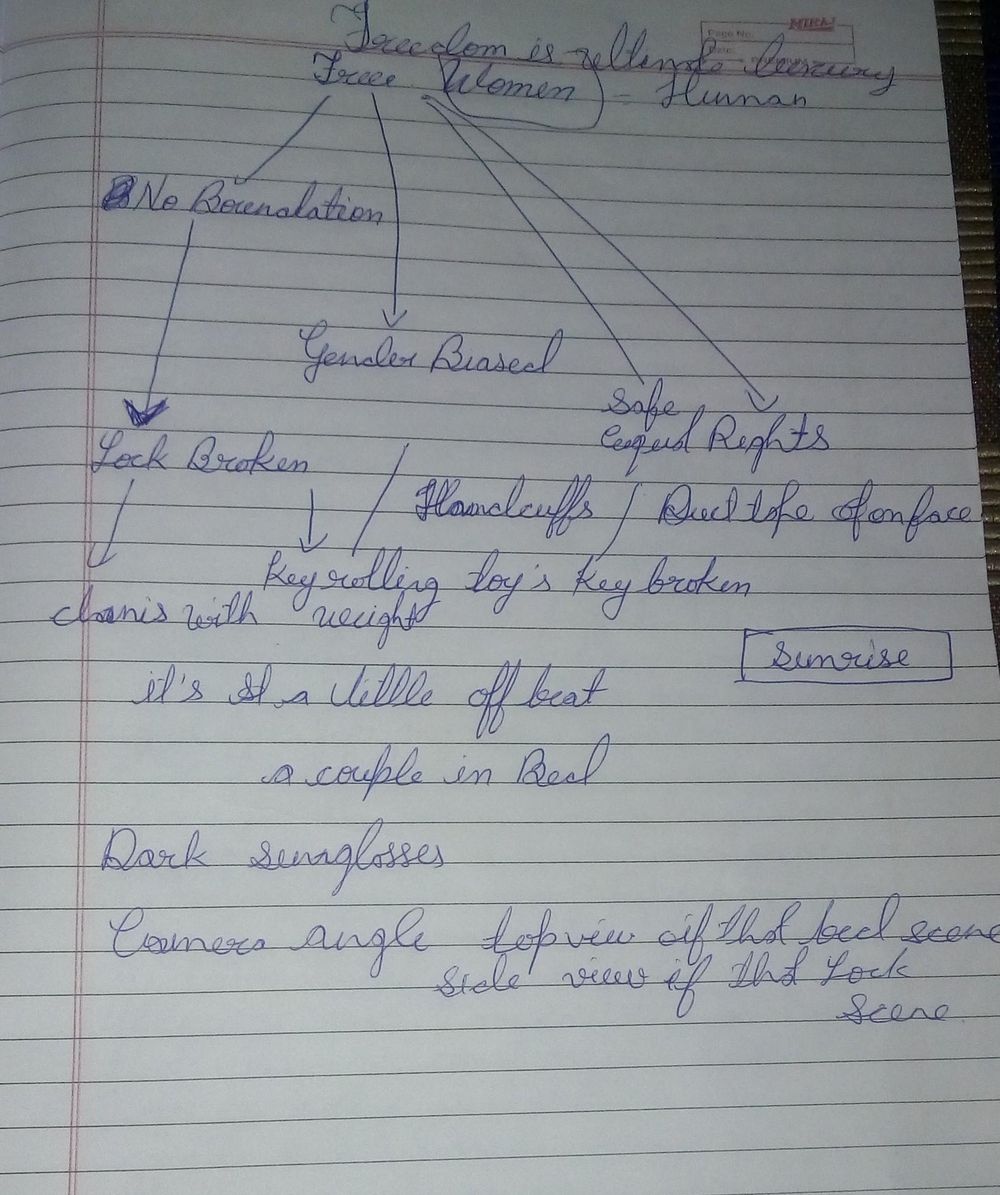 MIRAJ
Page No.
Date
Freedom is reltimate luxury
Free Women - Human
No Boundation
Gender Biased
Safe
Lock Broken
Eequal Rights
Handcuffs / Duct tape of on face
Key rolling toy's Key broken
chanis with weight
Sunrise
it's St a little off beat
a couple in Bed
Dark sunglosses
Camera angle top view oif tht bed scene
side view if tht Lock
Scene